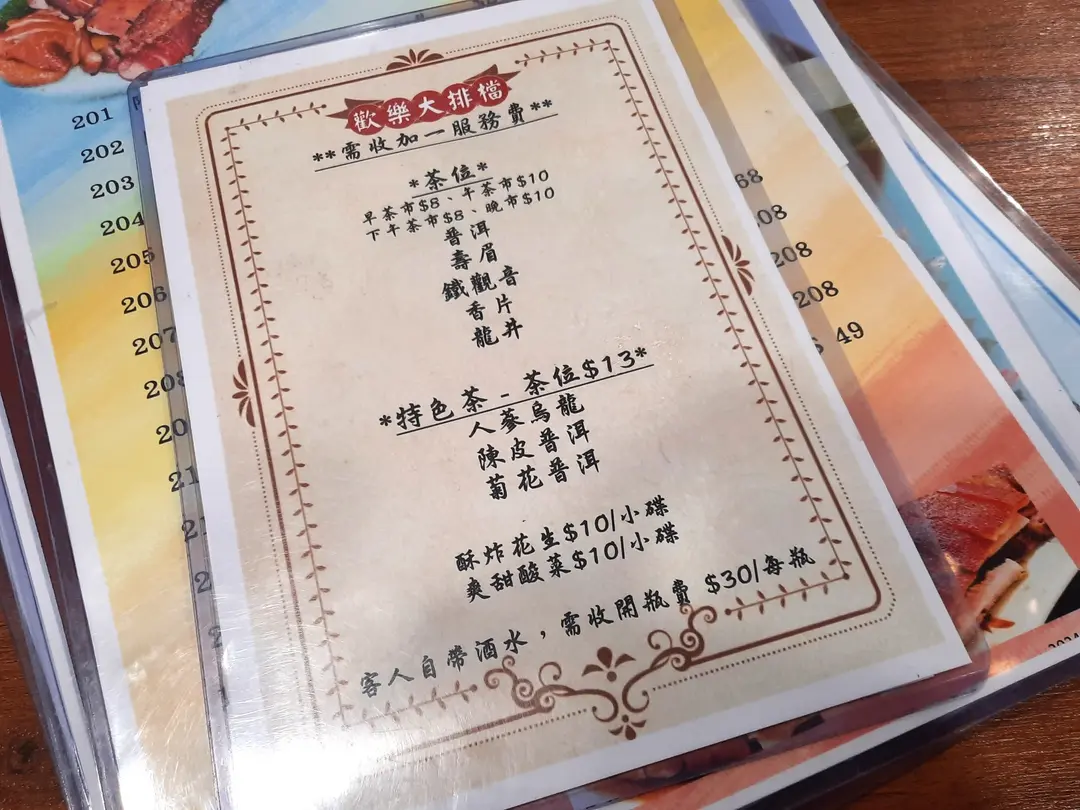 歡樂大排檔
**需收加一服務費**
*茶位*
早茶市$8、午茶市$10
下午茶市$8、晚市$10
普洱
壽眉
鐵觀音
香片
龍井
*特色茶-茶位$13*
人蔘烏龍
陳皮普洱
菊花普洱
酥炸花生$10/小碟
爽甜酸菜$10/小碟
客人自帶酒水，需收開瓶費 $30/每瓶
201
202
203
204
205
206
207
208
68
208
208
49